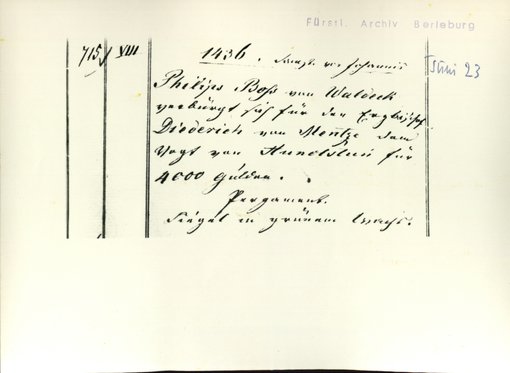 Fürstl. Archiv Berleburg
715 VIII
1436. Samst. vor Johannis
Juni 23
Philips Boss von Waldeck
verbürgt sich für den Erzbischof
Diederich von Mentze dem
Vogt von Hunolstein für
4000 Gulden.
Pergament.
Siegel in grünem Wachs.